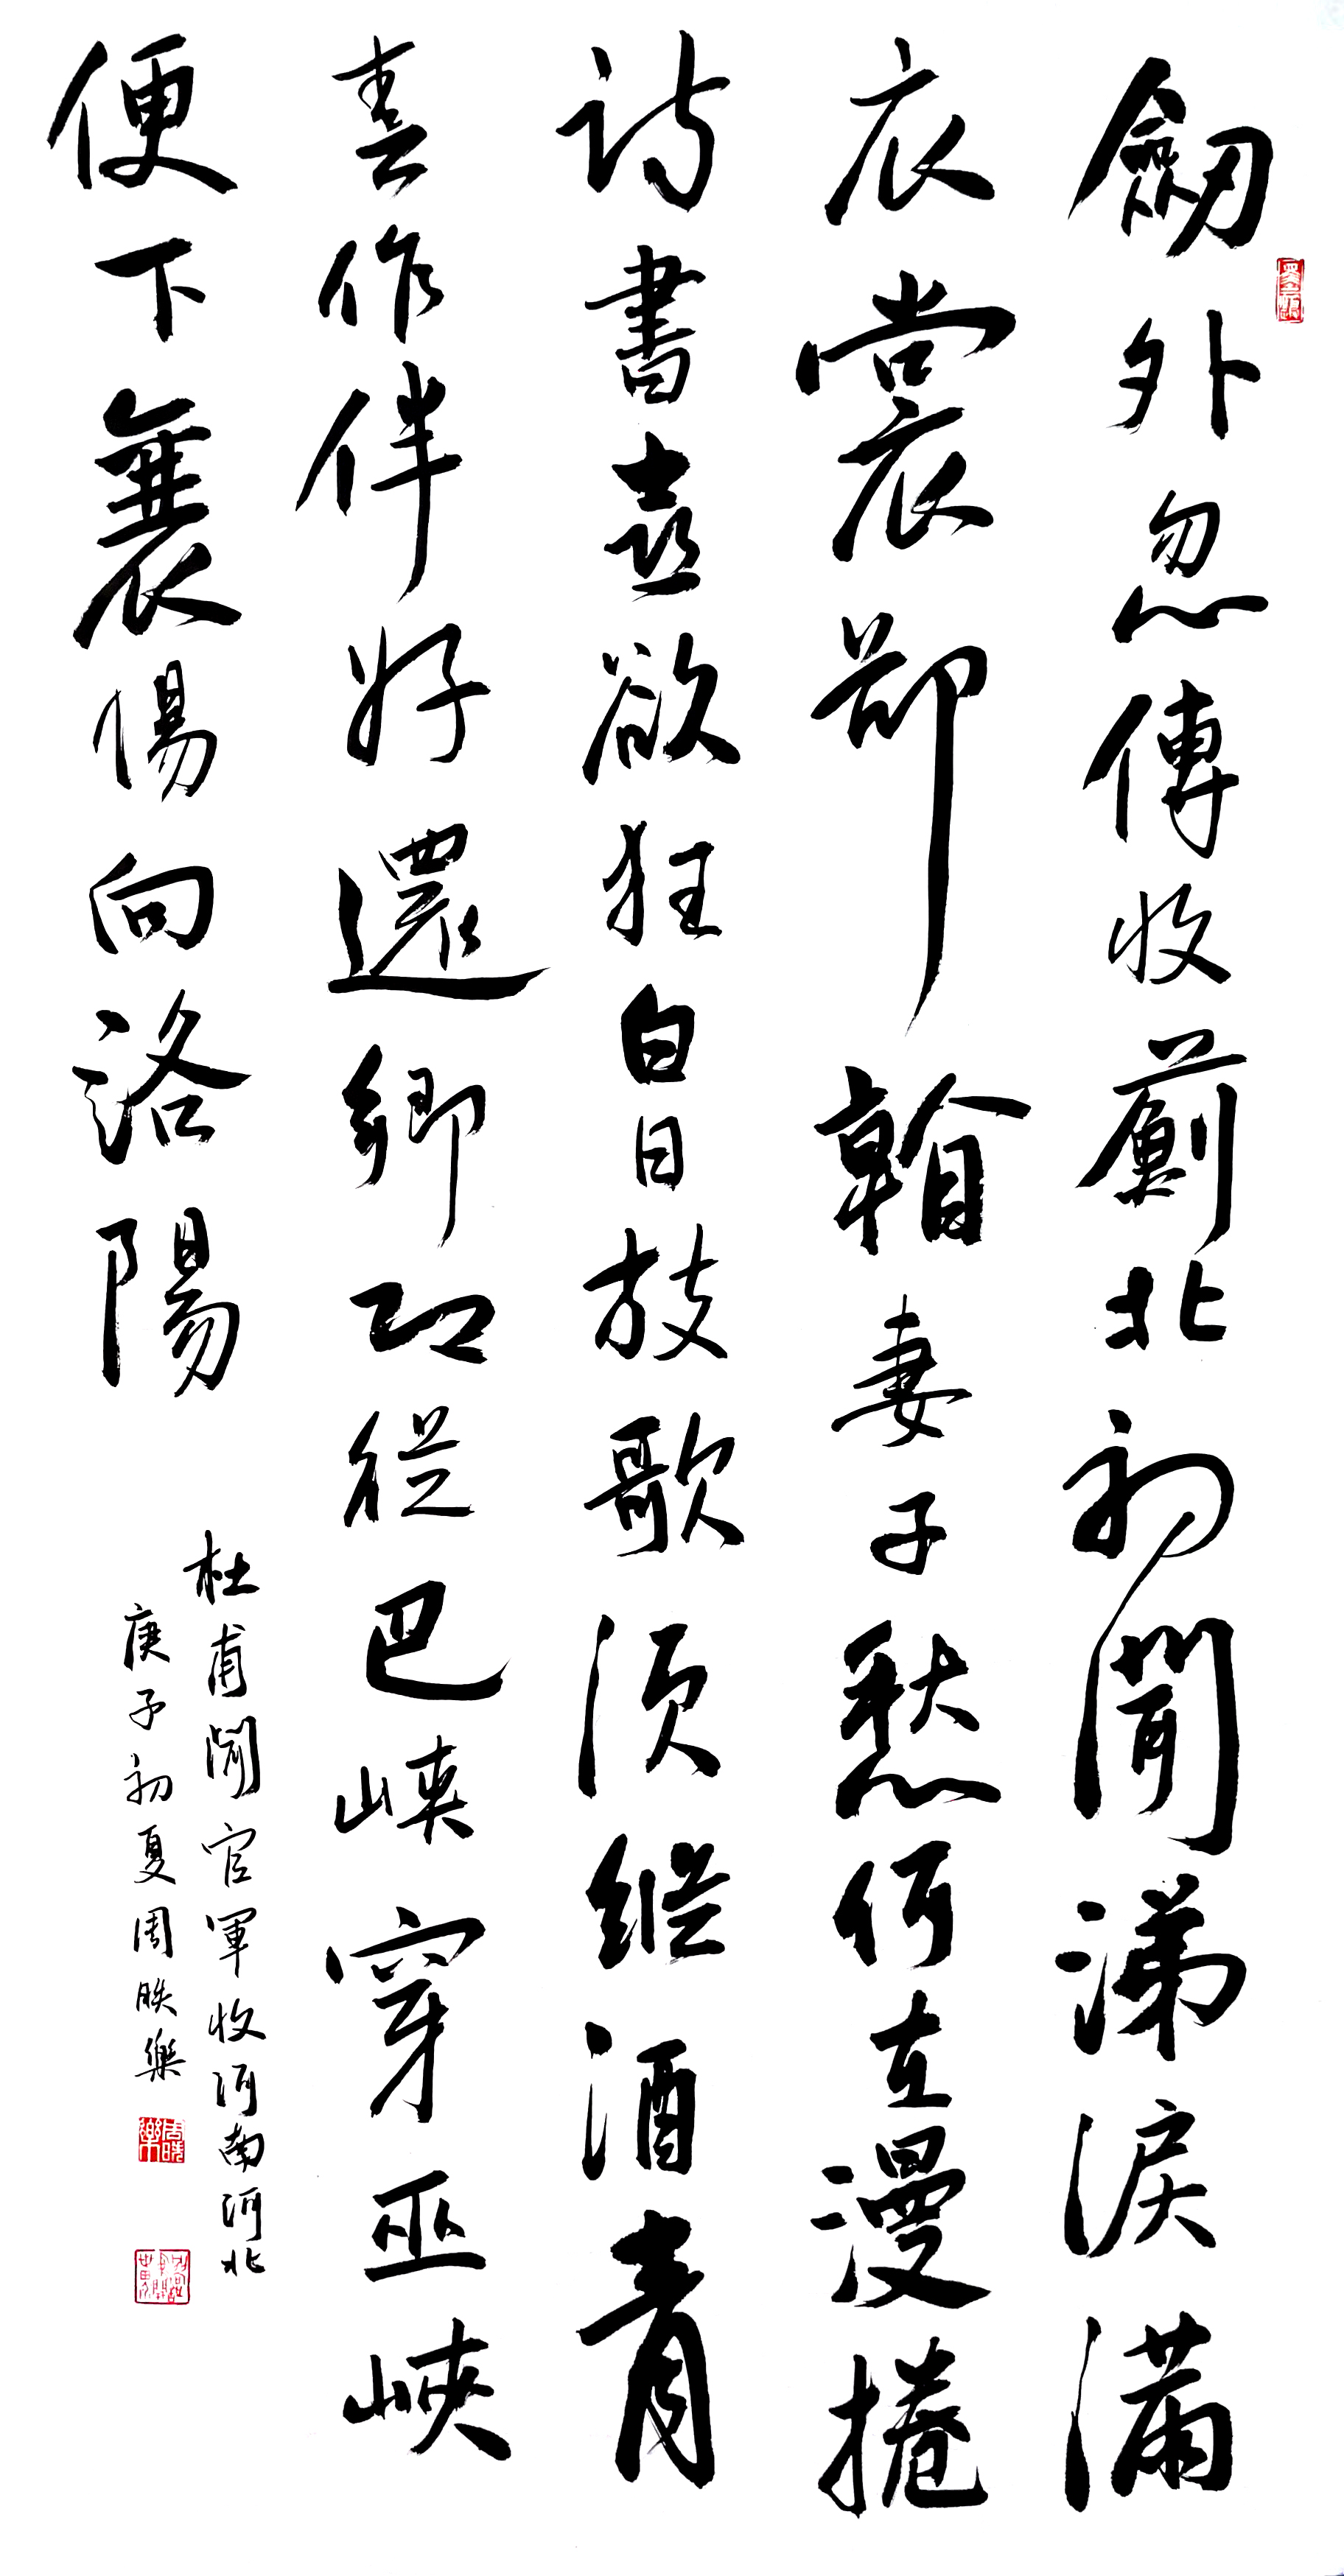 劔外忽傳收薊北初聞涕淚滿
衣裳却看妻子愁何在漫捲
詩書喜欲狂白日放歌須縱酒青
春作伴好還鄉即從巴峽穿巫峽
便下襄陽向洛陽
杜甫聞官軍收河南河北
庚子初夏周樂